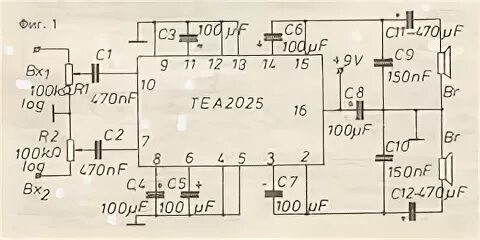 Фиг. 1
C3
100μF
C6
100μF
C11-470μF
Bx1
C1
9
11
12
13
14
15
+9V
C9
150nF
Br
100kΩ
R1
log
470nF
10
TEA2025
16
C8
100μF
R2
100kΩ
log
C2
470nF
7
C10
150nF
Br
Bx2
8
6
4
5
3
2
C4
100μF
C5
100μF
C7
100μF
C12-470μF